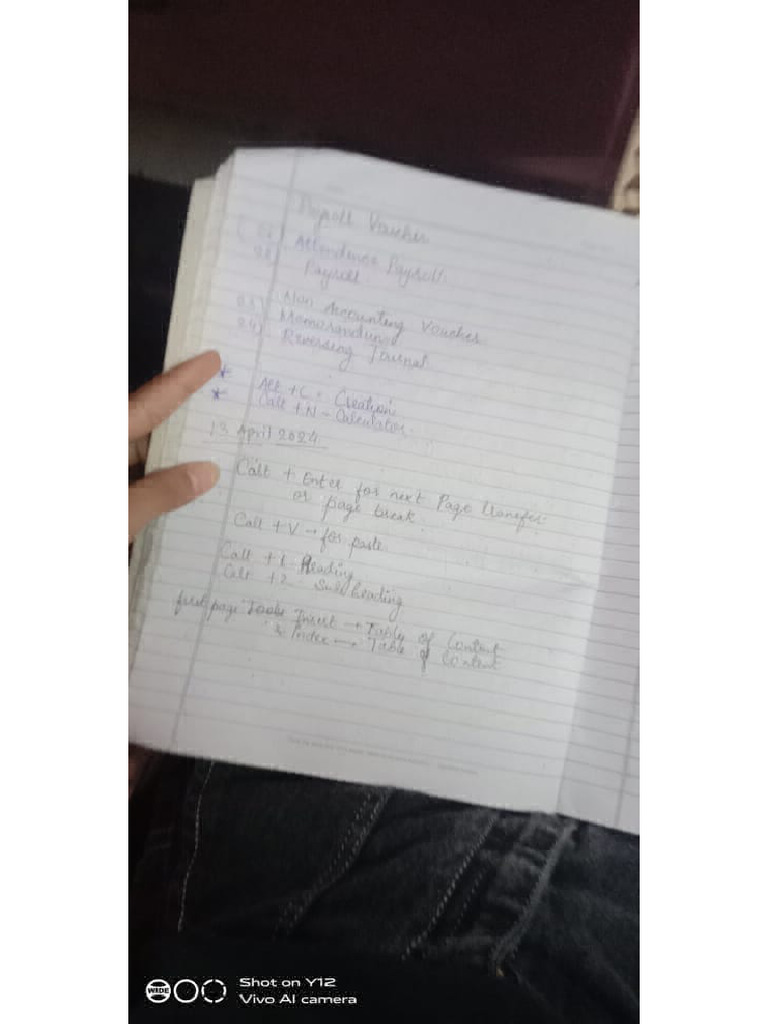 Payroll Voucher
Attendence Payroll
Payroll
Non Accounting Voucher
24) Memorandum
Reversing Journal
* Alt + C = Creation
* Calt + N - Calculator
13 April 2024
Calt + Enter for next Page transfer
or page break
Calt + V → for paste
Calt + 1 Heading
Calt + 2 - Sub heading
first page Tools Insert → Table of Content
& Index → Table of Content
WIDE
Shot on Y12
Vivo AI camera